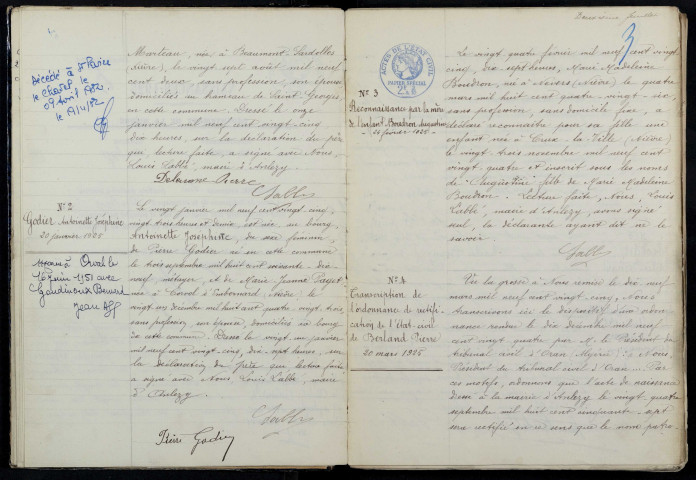 Décédé à St Pierre
le
09 Avril 1982
le 19/4/82
Marteau, née à Beaumont Sardolles
(Nièvre), le vingt sept août mil neuf
cent deux, sans profession, son épouse
domiciliés au hameau de Saint Georges
en cette commune. Dressé le onze
janvier mil neuf cent vingt-cinq
dix heures, sur la déclaration du père
qui, lecture faite, a signé avec Nous,
Louis Labbé, maire d'Anlezy.
Delacrosse Pierre
Labbé
N° 2
Godier Antoinette Joséphine
20 janvier 1925
Le vingt janvier mil neuf cent vingt cinq
vingt trois heures et demie est née, au bourg
Antoinette Joséphine, du sexe féminin,
de Pierre Godier né en cette commune
le trois novembre mil huit cent soixante dix
neuf métayer, et de Marie Jeanne Paget
née à
le
vingt un décembre mil huit cent quatre vingt trois,
sans profession, son épouse, domiciliés au bourg
de cette commune. Dressé le vingt un janvier
mil neuf cent vingt-cinq, dix-sept heures, sur
la déclaration du père qui, lecture faite
a signé avec Nous, Louis Labbé, maire
d'Anlezy.
Labbé
Pierre Godier
Marié à
juin 1951 avec
Bernard
Jean
3
ACTES DE L'ÉTAT CIVIL
PAPIER SPÉCIAL
N° 3
Reconnaissance par la mère
de l'enfant Boudron Augustine
24 février 1925
Le vingt quatre février mil neuf cent vingt
cinq, dix sept heures, Marie Madeleine
Boudron, née à Nevers (Nièvre) le quatre
mars mil huit cent quatre-vingt-six,
sans profession, sans domicile fixe, a
déclaré reconnaître pour sa fille une
enfant née à Crux la Ville (Nièvre)
le vingt trois novembre mil neuf cent
vingt quatre et inscrit sous les noms
de Augustine fille de Marie Madeleine
Boudron. Lecture faite, Nous, Louis
Labbé, maire d'Anlezy, avons signé
seul, la déclarante ayant dit ne le
savoir
Labbé
N° 4
Transcription de
l'ordonnance de rectifi-
cation de l'état civil
de Berland Pierre
20 mars 1925
Vu la grosse à Nous remise le dix neuf
mars mil neuf cent vingt cinq, Nous
transcrivons ici le dispositif d'une ordon-
nance rendue le dix décembre mil neuf
cent vingt quatre par M. le Président du
tribunal civil d'Oran, Algérie : Nous,
Président du tribunal civil d'Oran... Par
ces motifs, ordonnons que l'acte de naissance
dressé à la mairie d'Anlezy le vingt-quatre
septembre mil huit cent cinquante-sept
sera rectifié en ce sens que le nom patro-